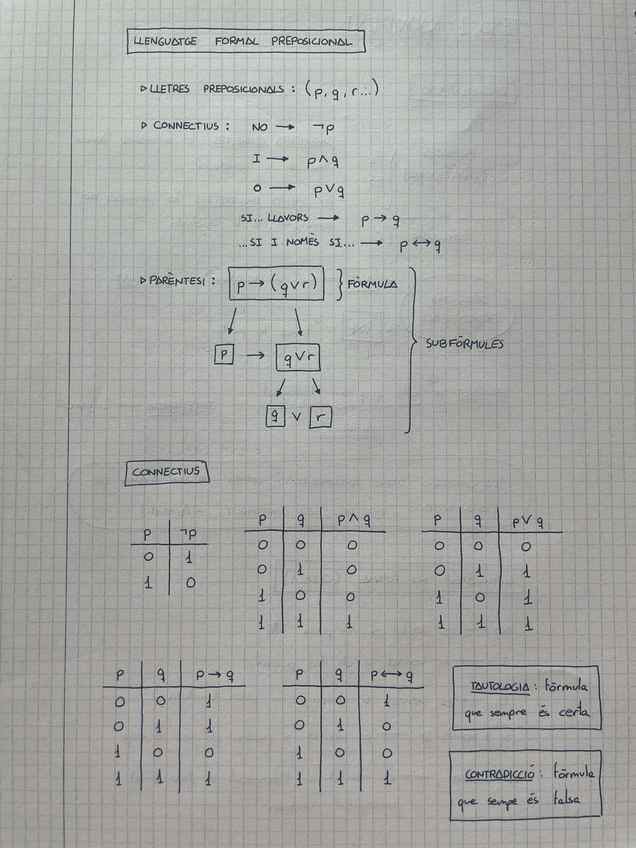 LLENGUATGE FORMAL PREPOSICIONAL
▷ LLETRES PREPOSICIONALS : (p, q, r...)
▷ CONNECTIUS : NO → ¬p
I → p ∧ q
O → p ∨ q
SI... LLAVORS → p → q
...SI I NOMÈS SI... → p ↔ q
▷ PARÈNTESI : p → (q ∨ r) } FÓRMULA
p → q ∨ r } SUBFÓRMULES
q ∨ r
CONNECTIUS
p ¬p
0 1
1 0
p q p ∧ q
0 0 0
0 1 0
1 0 0
1 1 1
p q p ∨ q
0 0 0
0 1 1
1 0 1
1 1 1
p q p → q
0 0 1
0 1 1
1 0 0
1 1 1
p q p ↔ q
0 0 1
0 1 0
1 0 0
1 1 1
TAUTOLOGIA : fórmula
que sempre és certa
CONTRADICCIÓ : fórmula
que sempe és falsa